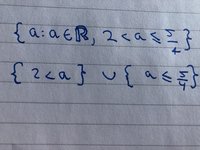 {a:a∈ℝ, 2<a≤5/4}
{2<a} ∪ {a≤5/4}